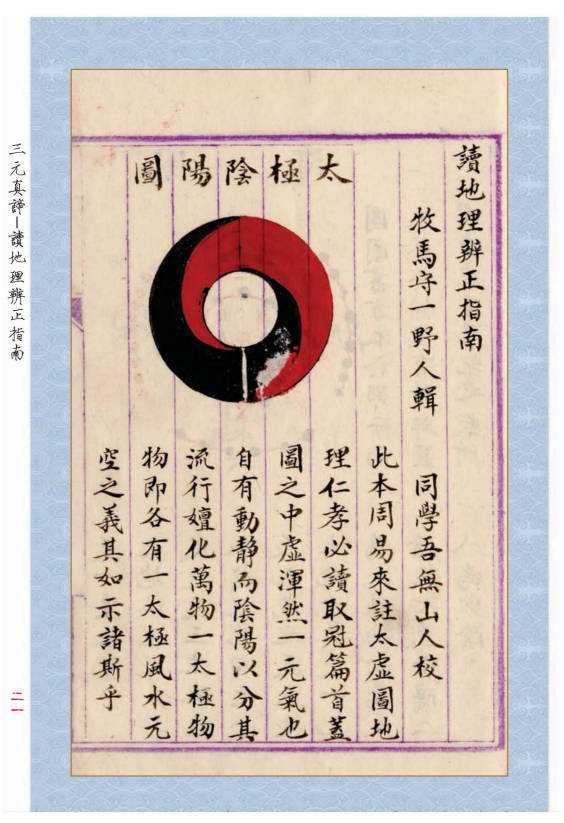 三元真諦－讀地理辨正指南
讀地理辨正指南
牧馬守一野人輯
同學吾無山人校
太極陰陽圖
此本周易來註太虛圖地
理仁孝必讀取冠篇首蓋
圖之中虛渾然一元氣也
自有動靜而陰陽以分其
流行嬗化萬物一太極物
物即各有一太極風水元
空之義其如示諸斯乎
二一